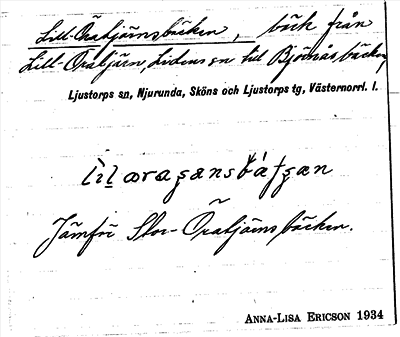 Lill-Öratjärnsbäcken, bäck från
Lill-Öratjärn, Lidens sn till Björnåsbäcken,
Ljustorps sn, Njurunda, Sköns och Ljustorps tg, Västernorrl. l.
Jämför Stor-Öratjärnsbäcken.
ANNA-LISA ERICSON 1934